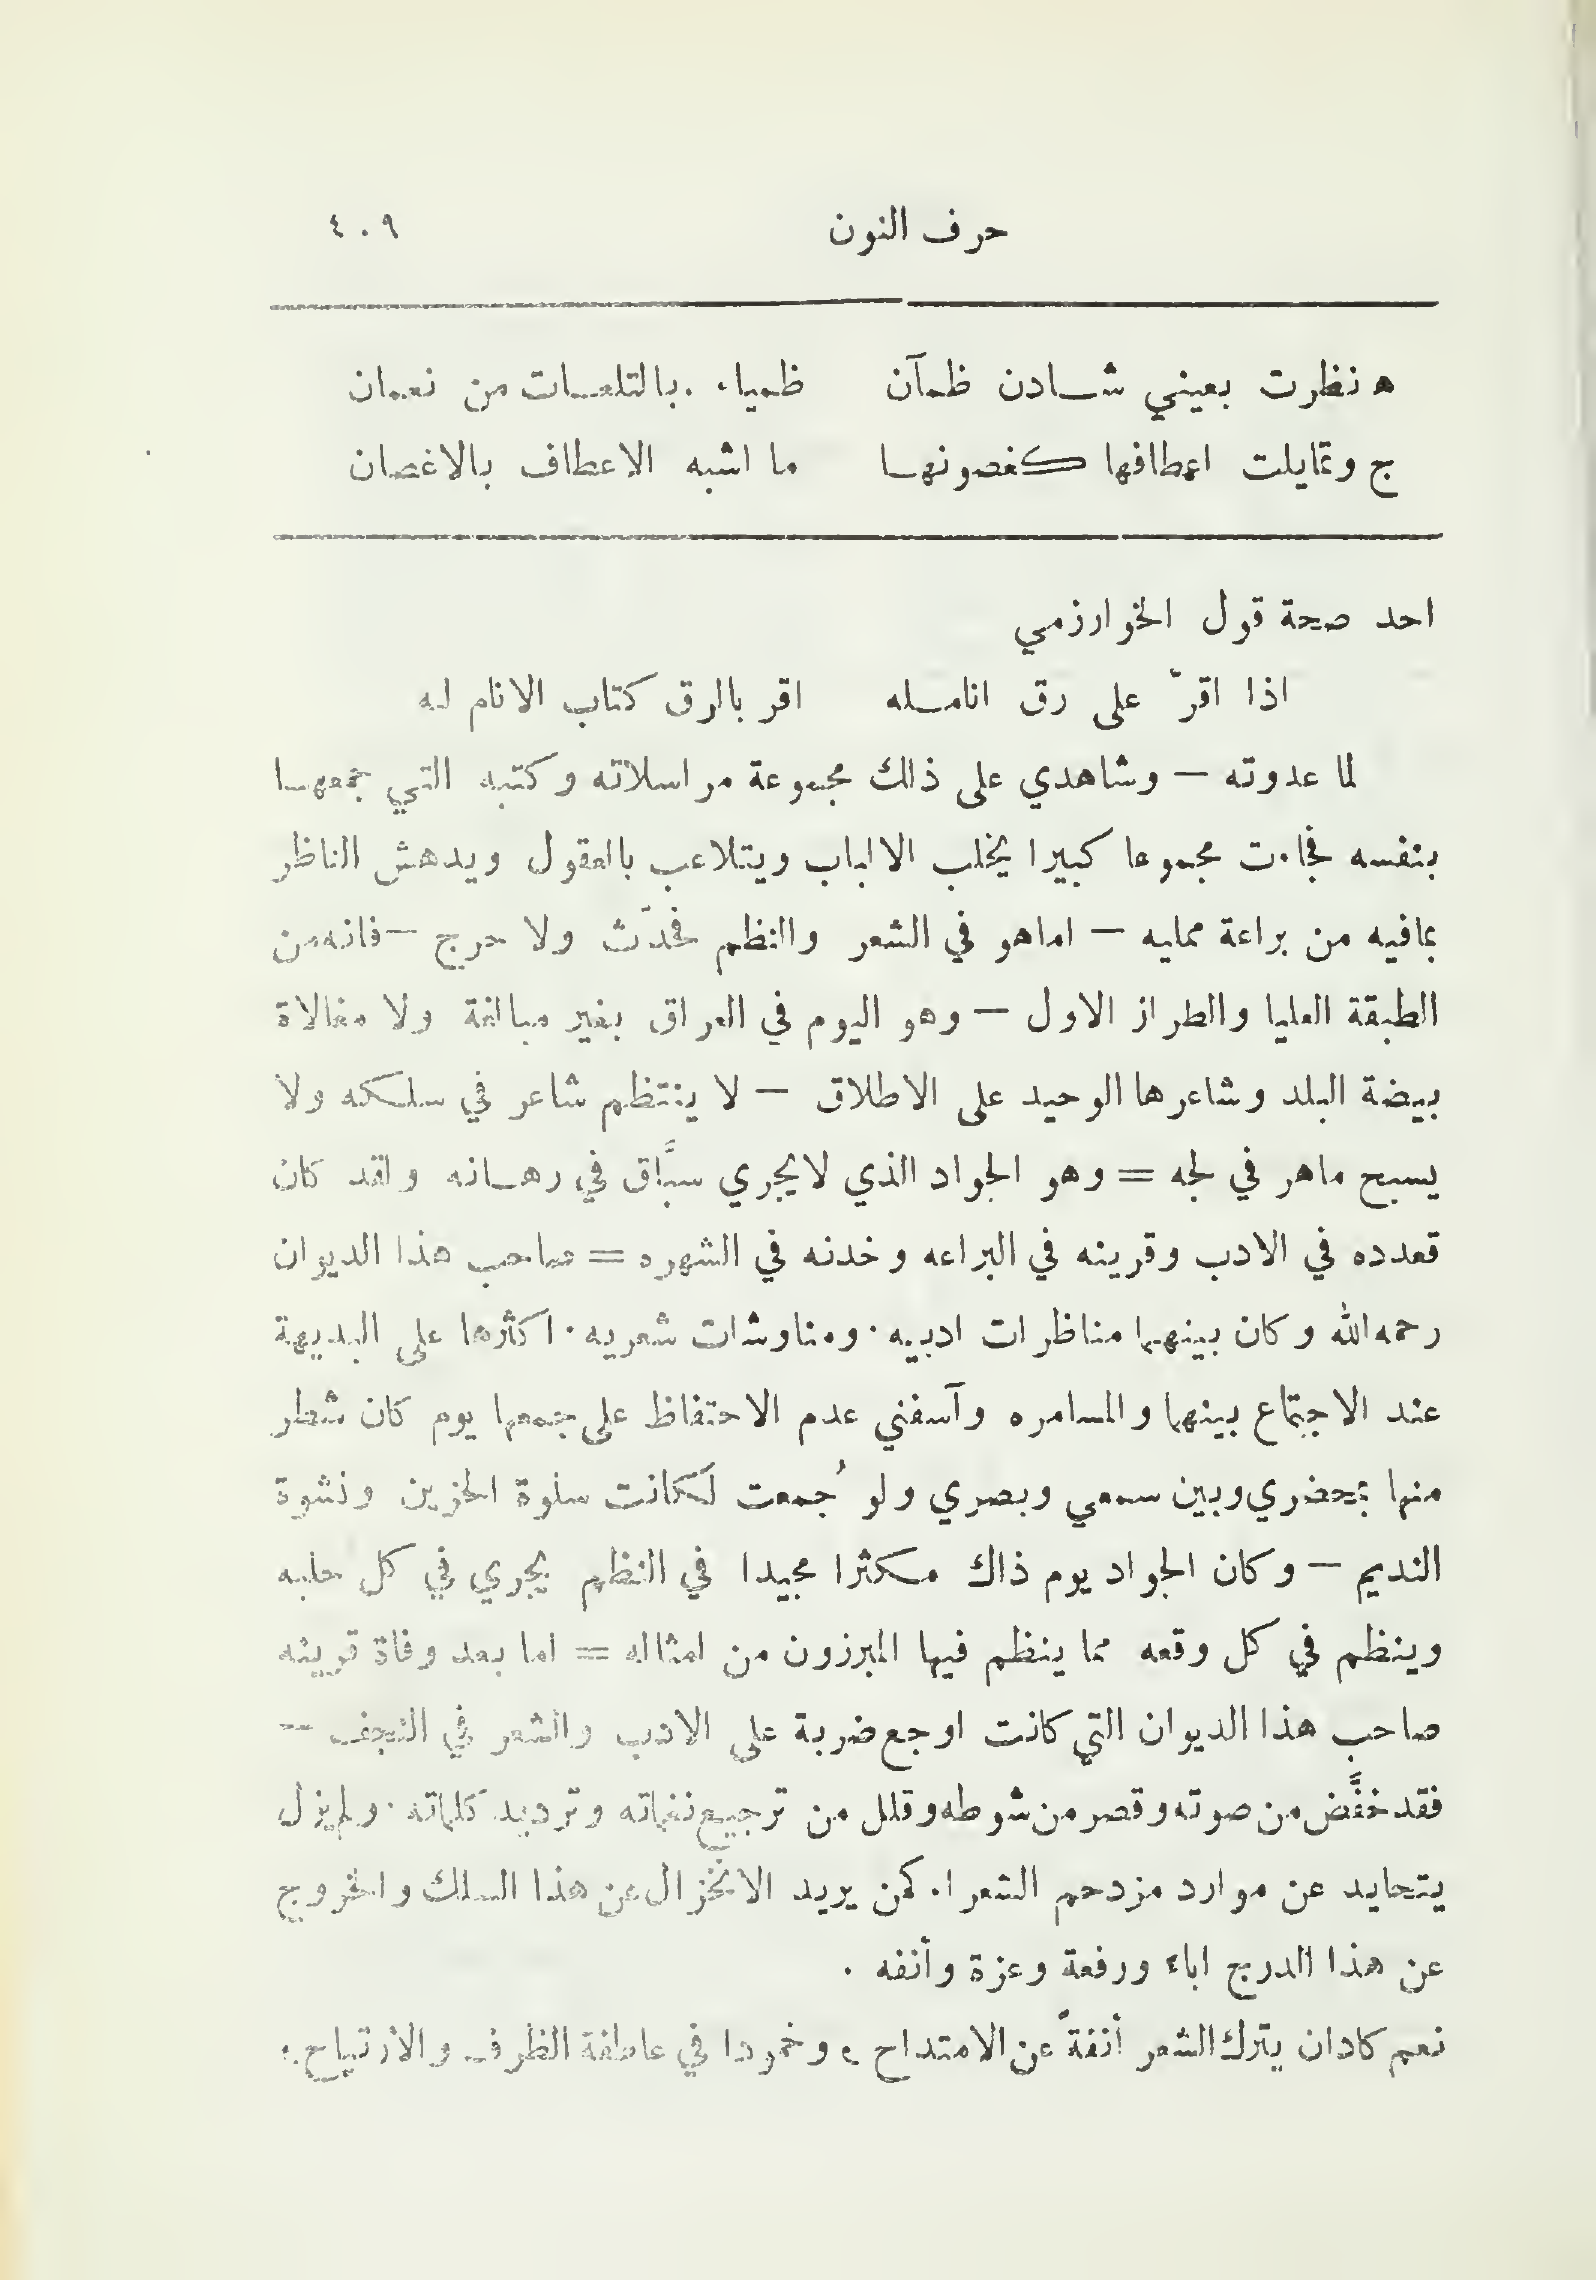 حرف النون ٤٠٩
ه نظرت بعيني شادن ظمآن ظمياء بالتلعات من نعمان
ج وتمايلت اعطافها كغصونها ما اشبه الاعطاف بالاغصان
احد صحة قول الخوارزمي
اذا اقرّ على رق انامله اقر بالرق كتاب الانام له
لما عدوته — وشاهدي على ذالك مجموعة مراسلاته وكتبه التي جمعها
بنفسه فجاءت مجموعا كبيرا يخلب الالباب ويتلاعب بالعقول ويدهش الناظر
بمافيه من براعة ممليه — اماهو في الشعر والنظم فحدّث ولا حرج — فانه من
الطبقة العليا والطراز الاول — وهو اليوم في العراق بغير مبالغة ولا مغالاة
بيضة البلد وشاعرها الوحيد على الاطلاق — لا ينتظم شاعر في سلكه ولا
يسبح ماهر في لجه = وهو الجواد الذي لايجري سبَّاق في رهانه ولقد كان
قعدده في الادب وقرينه في البراعه وخدنه في الشهره = صاحب هذا الديوان
رحمه الله وكان بينهما مناظرات ادبيه · ومناوشات شعريه · اكثرها على البديهة
عند الاجتماع بينهما والمسامره وآسفني عدم الاحتفاظ على جمعها يوم كان شطر
منها بمحضري وبين سمعي وبصري ولو جُمعت لكانت سلوة الحزين ونشوة
النديم — وكان الجواد يوم ذاك مكثرا مجيدا في النظم يجري في كل حلبه
وينظم في كل وقعه مما ينظم فيها المبرزون من امثاله = اما بعد وفاة قرينه
صاحب هذا الديوان التي كانت اوجع ضربة على الادب والشعر في النجف —
فقد خفَّض من صوته وقصر من شوطه وقلل من ترجيع نغماته وترديد كلماته · ولم يزل
يتحايد عن موارد مزدحم الشعراء كمن يريد الانخزال عن هذا السلك والخروج
عن هذا الدرج اباء ورفعة وعزة وأنفه .
نعم كادان يترك الشعر أنفةً عن الامتداح ، وخمودا في عاطفة الظرف والارتياح ،